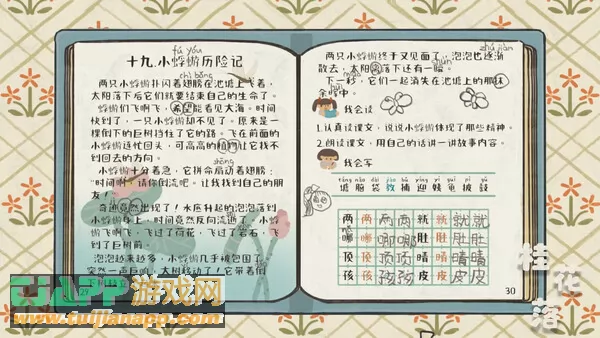 fú yóu
十九.小蜉蝣历险记
chì bǎng
两只小蜉蝣扑闪着翅膀在池塘上飞着，
太阳落下后它们就要结束自己的生命了。
小蜉蝣们飞啊飞，希望能看见大海。时间
快到了，一只小蜉蝣却不见了。原来是一
棵倒下的巨树挡住了它的路。飞在前面的
小蜉蝣连忙回头，可高高的植物让它找不
到回去的方向。
小蜉蝣十分着急，它拼命扇动着翅膀：
“时间啊！请你倒流吧。让我找到自己的朋
友！”
奇迹竟然出现了！水底升起的泡泡落到
小蜉蝣身上，时间竟然反向流逝。小蜉蝣
飞啊飞，飞过了荷花，飞过了岩石，飞
到了巨树前。
泡泡越来越多，小蜉蝣几乎被包围了。
突然一声巨响，大树移动了！它带着倒
两只小蜉蝣终于又见面了，泡泡也逐渐
zhú jiàn
散去，太阳落下还有一瞬。
shùn
下一秒，它们一起消失在了池塘上的那抹
余晖中。
我会说
1.认真读课文，说说小蜉蝣体现了那些精神。
2.朗读课文，用自己的话讲一讲故事内容。
我会写
塘 脑 袋 教 捕 迎 姨 龟 披 鼓
两 两 两 两 就 就 就 就
哪 哪 哪 哪 肚 肚 肚 肚
顶 顶 顶 顶 晴 晴 晴 晴
孩 孩 孩 孩 皮 皮 皮 皮
30
桂花落
APP游戏网
www.tuijianapp.com